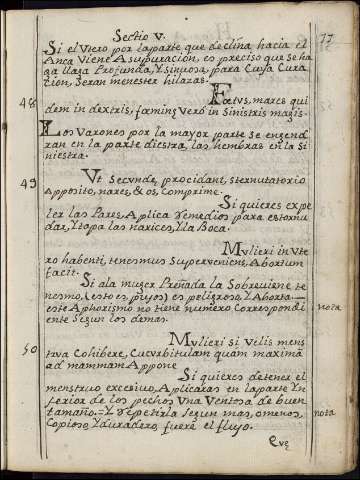 Sectio V.
77
Si el Utero por la parte que declina hacia el
Anca Viene A supuracion, es preciso que se ha
ga llaga Profunda, Y sinuosa, para Cuya Cura
cion, Seran menester hilazas.
48
Foetus, mares qui
dem in dextris, faminę Verò in Sinistris magis.
Los Varones por la mayor parte se engend
ran en la parte diestra, las hembras en la si
niestra.
49
Ut Secundę, procidant, sternutatorio
Apposito, nares, & os, Comprime.
Si quieres expe
ler las Pares, Aplica remedios para estornu
dar, Y tapa las narices, Y la Boca.
Mulieri in Ute
ro habenti, tenesmus Superveniens, Abortum
facit.
Si ala muger Preñada la Sobreviene te
nesmo, (esto es, pujos) es peligroso, Y Aborta.
este Aphorismo no tiene numero Correspondi
ente Segun los demas.
nota
50
Mulieri si Velis mens
trua Cohibere, Cucurbitulam quam maximā
ad mammam Appone
Si quieres detener el
menstruo excesivo, Aplicaras en la parte In
ferior de los pechos Una Ventosa de buen
tamaño.= Y repetirla segun mas, o menos,
Copioso, Y duradero, fuere el flujo.
nota
Quę